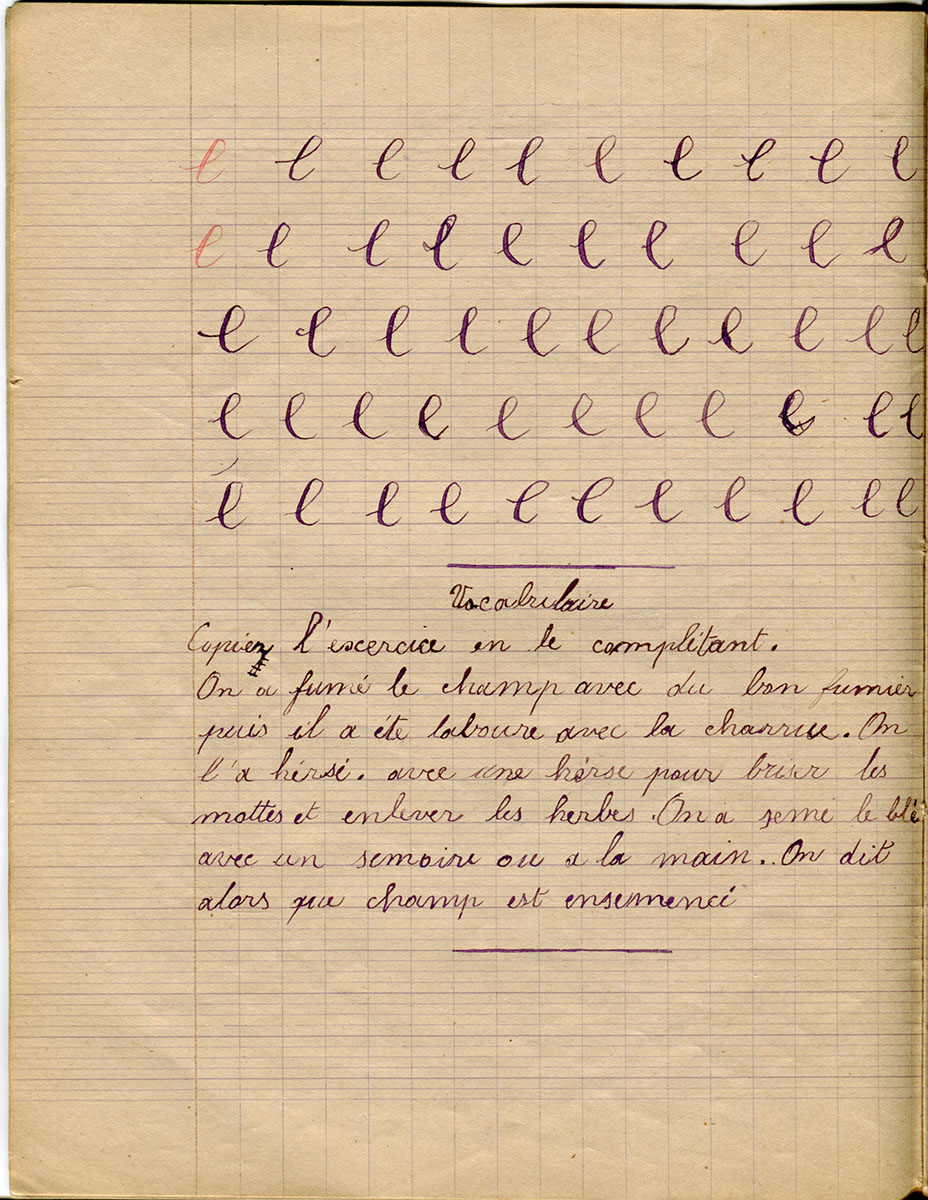 l l l l l l l l l l
l l l l l l l l l l
l l l l l l l l l l l
l l l l l l l l l l l
l l l l l l l l l l l
Vocabulaire
Copier l'excercice en le complétant.
On a fumé le champ avec du bon fumier
puis il a été laboure avec la charrue. On
l'a hérsé. avec une hérse pour briser les
mottes et enlever les herbes. On a semé le blé
avec un semoire ou a la main.. On dit
alors que champ est ensemencé